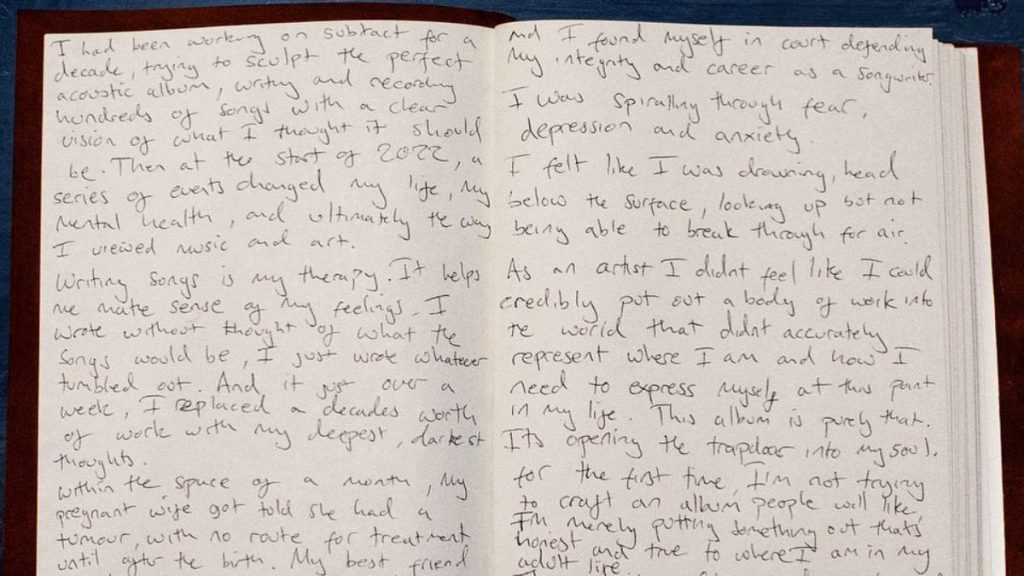 I had been working on subtract for a
decade, trying to sculpt the perfect
acoustic album, writing and recording
hundreds of songs with a clear
vision of what I thought it should
be. Then at the start of 2022, a
series of events changed my life, my
mental health, and ultimately the way
I viewed music and art.
Writing songs is my therapy. It helps
me make sense of my feelings. I
wrote without thought of what the
songs would be, I just wrote whatever
tumbled out. And it just over a
week, I replaced a decades worth
of work with my deepest, darkest
thoughts.
within the space of a month, my
pregnant wife got told she had a
tumour, with no route for treatment
until after the birth. My best friend
and I found myself in court defending
my integrity and career as a songwriter.
I was spiralling through fear,
depression and anxiety.
I felt like I was drowning, head
below the surface, looking up but not
being able to break through for air.
As an artist I didnt feel like I could
credibly put out a body of work into
the world that didnt accurately
represent where I am and how I
need to express myself at this point
in my life. This album is purely that.
Its opening the trapdoor into my soul.
for the first time, I'm not trying
to craft an album people will like,
I'm merely putting something out thats
honest and true to where I am in my
adult life.